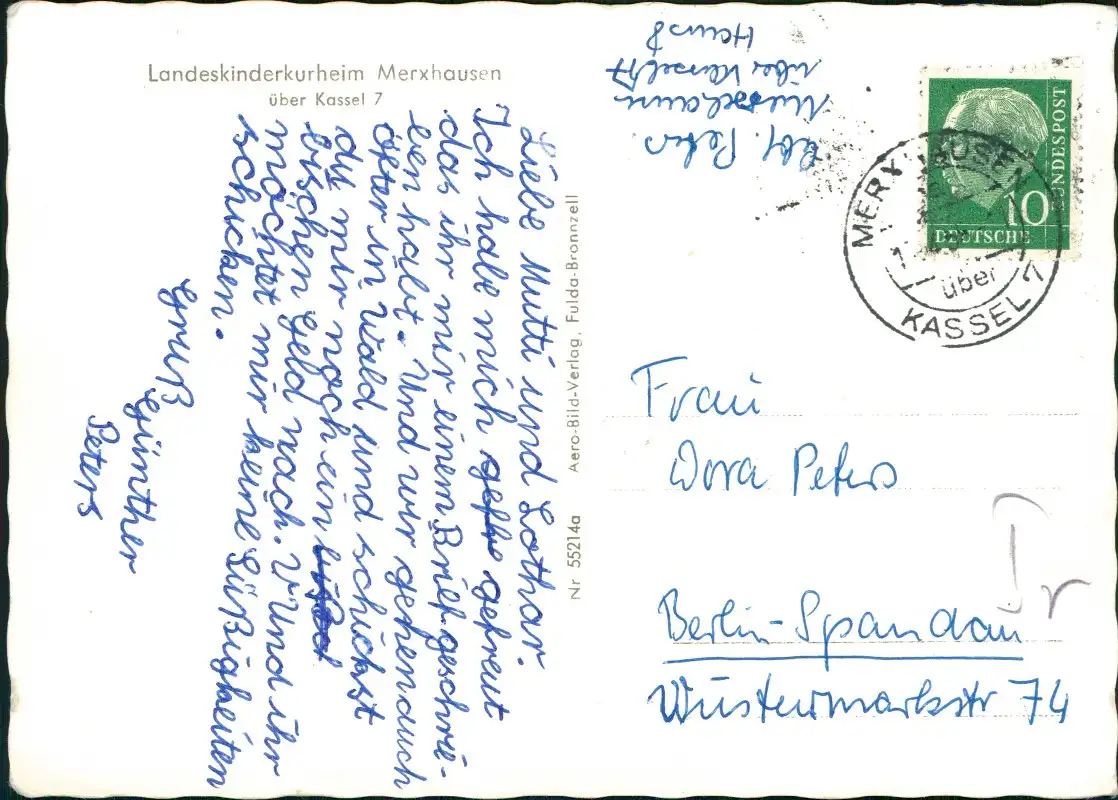 Landeskinderkurheim Merxhausen
über Kassel 7
Liebe Mutti und Lothar.
Ich habe mich gefre gefreut
das ihr mir einem Brief geschrie-
ben habt. Und wir gehen auch
öfter in Wald und schickst
du mir noch ein
bischen Geld nach. Und ihr
möchtet mir keine Süßigkeiten
schicken.
Gruß
Günther
Peters
Nr 55214a Aero-Bild-Verlag, Fulda-Bronnzell
Abs. Peters
Merxhausen
über Kassel 7
Haus 8
DEUTSCHE BUNDESPOST
10
MERXHAUSEN
über
KASSEL 7
Frau
Dora Peters
Berlin-Spandau
Wustermarkstr 74